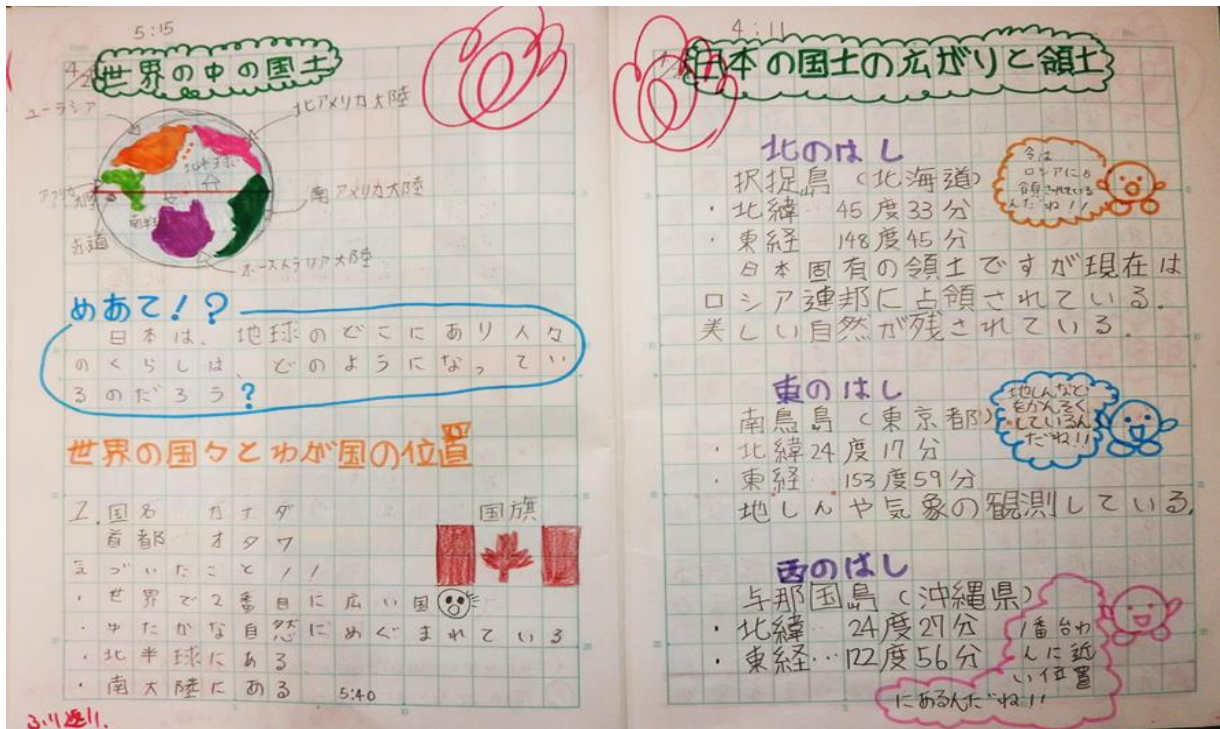 5:15
世界の中の国土
ユーラシア
北アメリカ大陸
北半球
アフリカ大陸
南アメリカ大陸
赤道
オーストラリア大陸
めあて!?
日本は、地球のどこにあり人々
のくらしは、どのようになってい
るのだろう?
世界の国々とわが国の位置
1.国名 カナダ
国旗
首都 オタワ
気づいたこと!!
・世界で2番目に広い国
・ゆたかな自然にめぐまれている
・北半球にある
・南大陸にある
5:40
ふり返り.
4:11
日本の国土の広がりと領土
北のはし
択捉島(北海道)
・北緯 45度33分
・東経 148度45分
今は
ロシアに占
領されている
んだね!!
日本固有の領土ですが現在は
ロシア連邦に占領されている.
美しい自然が残されている.
東のはし
南鳥島(東京都)
・北緯24度17分
・東経 153度59分
地しんなど
をかんそく
しているん
だね!!
地しんや気象の観測している.
西のはし
与那国島(沖縄県)
・北緯… 24度27分
・東経…122度56分
1番台わ
んに近
い位置
にあるんだね!!